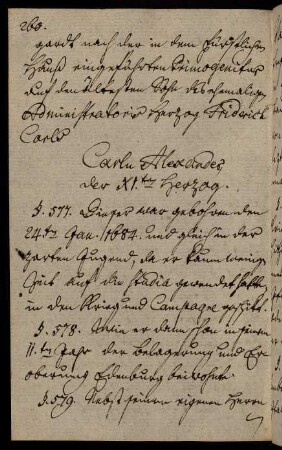 260.
gardt nach der in dem Fürstlichen
Hauß eingeführten Primogenitur
auf den Eltesten Sohn des ehemaligen
Administratoris Herzog Friderich
Carls
Carln Alexander
der XI.ten Herzog.
§. 577. Dieser war gebohren den
24ten Jan. 1684. und gleich in der
zarten Jugend, da er kaum wenig
Zeit auf die Studia gewendet hatte
in den Krieg und Campagne
§. 578. er dann schon in seinem
11.ten Jahr der Belagerung und Er
oberung Ebenburg beiwohnte.
§. 579. Nebst seinen eigenen Herrn